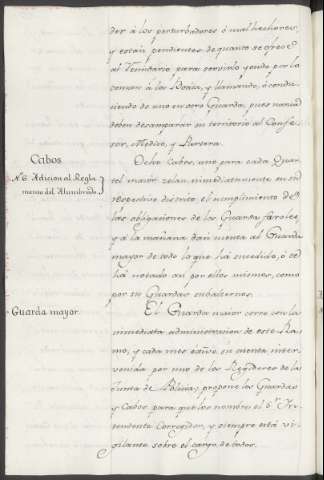 der á los perturbadores ó mal hechores,
y están pendientes de quanto se ofrece
al Vecindario para servirlo yendo por lo
comun á las Boticas, y llamando, ó condu-
ciendo de uno en otro Guarda, pues nunca
deben desamparar su territorio al Confe-
sor, Medico, y Partera.
Cabos
N. 6. Adicion al Regla
mento del Alumbrado.
Ocho Cabos, uno para cada Quar-
tel mayor zelan inmediatamente en su
respectivo distrito el cumplimiento de
las obligaciones de los Guarda faroles,
y á la mañana dan cuenta al Guarda
mayor de todo lo que ha sucedido, ó se
ha notado asi por ellos mismos, como
por sus Guardas subalternos.
Guarda mayor.
El Guarda mayor corre con la
inmediata administracion de este Ra-
mo, y cada mes exhive su cuenta inter-
venida por uno de los Regidores de la
Junta de Policia; propone los Guardas
y Cabos para que los nombre el Sr. In-
tendente Corregidor, y siempre está vi-
gilante sobre el cargo de todos.